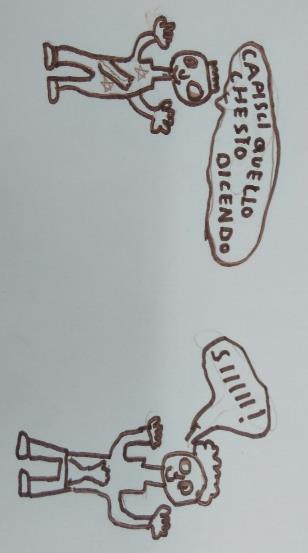 CAPISCI QUELLO
CHESTO DICENDO
SIIIIII!